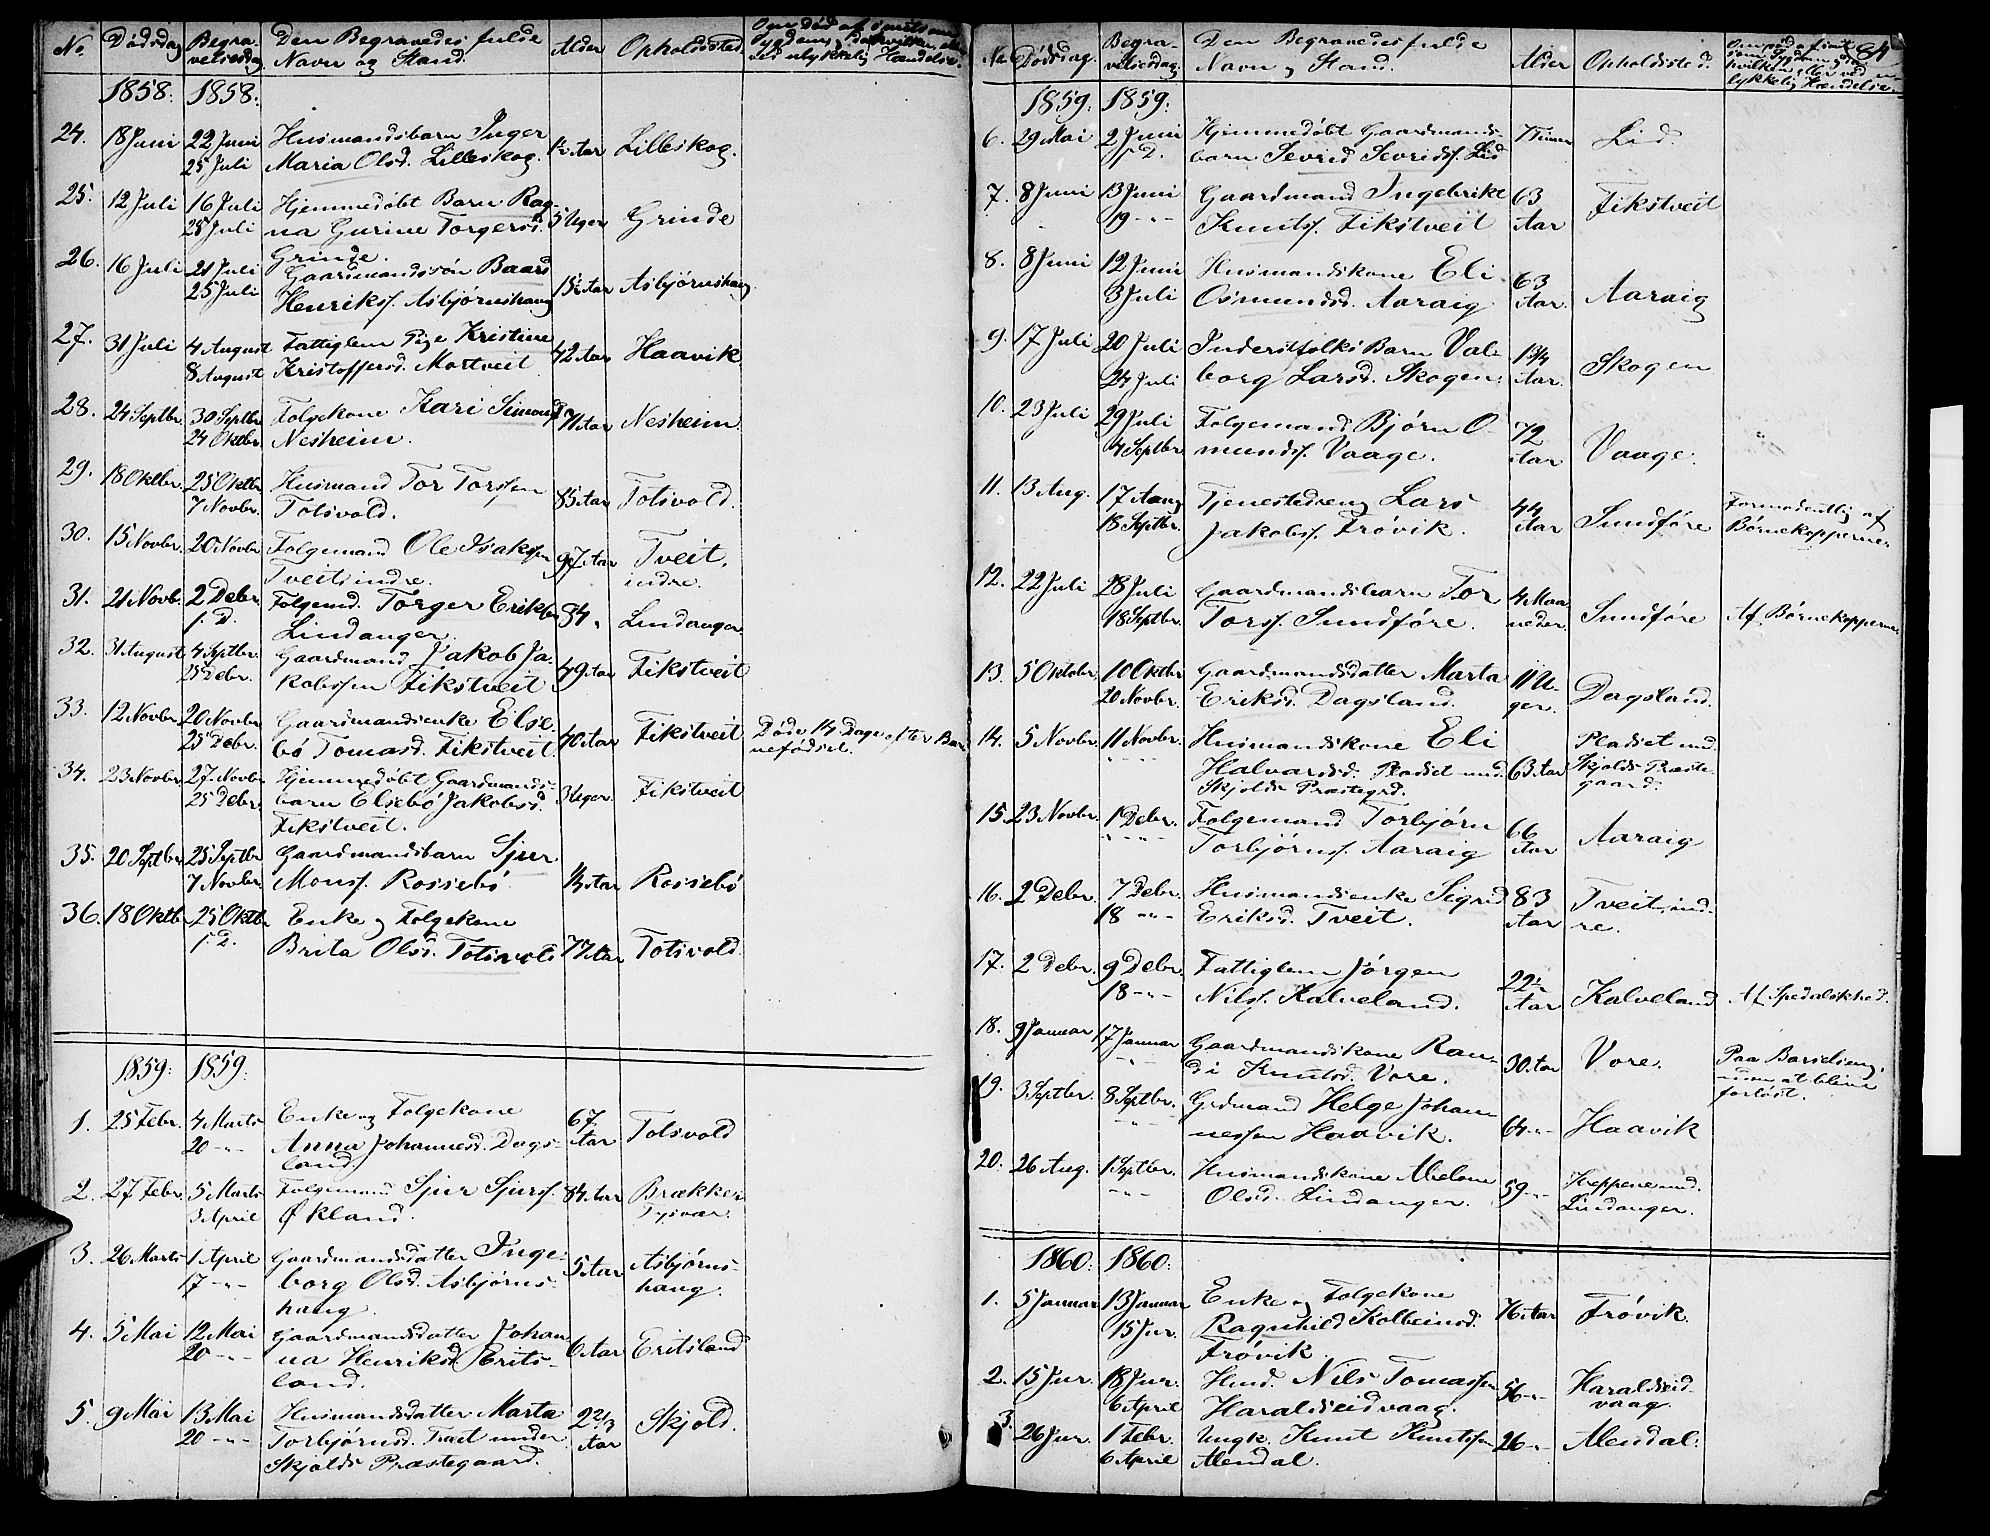 No. Dödsdag Begra- Den Begravedes fulde Alder Opholdssted.
velsesdag. Navn og Stand.
1858. 1858.
24. 18 Juni 22 Juni Husmandsbarn Inger
25 Juli Maria Olsd. Lilleskog. Aar Lilleskog.
25. 12 Juli 16 Juli Hjemmedøbt Barn Rag-
25 Juli na Gurine Torgersd. 5 Uger Grinde
Grinde.
26. 16 Juli 21 Juli Gaardmandssön Baard
25 Juli Henriks. Asbjørnshaug Aar Asbjørnshaug
27. 31 Juli 4 August Fattiglem Pige Kristine
8 August Kristoffersd. Mortveit 42 Aar Haavik
28. 24 Septbr. 30 Septbr. Folgekone Kari Simonsd.
24 Oktbr. Nesheim. 71 Aar Nesheim.
29. 18 Oktbr. 25 Oktbr. Husmand Tor Torssen
7 Novbr. Totsvold. 85 Aar Totsvold.
30. 15 Novbr. 20 Novbr. Folgemand Ole Isaksen 97 Aar Tveit,
Tveit indre. indre.
31. 21 Novb. 2 Debr. Folgemd. Torger Eriksen 84 " Lindanger.
s. D. Lindanger.
32. 31 August 4 Septbr. Gaardmand Jakob Ja-
25 Debr. kobssen Fikstveit 49 Aar Fikstveit
33. 12 Novbr. 20 Novbr. Gaardmandsenke Else-
25 Debr. bö Tomasd. Fikstveit. 40 Aar Fikstveit Döde 14 Dage efter Bar-
nefödsel.
34. 23 Novbr. 27. Novbr. Hjemmedøbt Gaardmands-
25 Debr. barn Elsebö Jakobsd. 3 Uger. Fikstveit
Fikstveit.
35. 20 Septbr. 25 Septbr. Gaardmandsbarn Sjur
7 Novbr. Monss. Rossebö. Aar Rossebö
36. 18 Oktbr. 25 Oktbr. Enke og Folgekone
s. D. Brita Olsd. Totsvold 77 Aar Totsvold.
1859: 1859:
1. 25 Febr. 4 Marts Enke og Folgekone 67
20 -"- Anna Johannesd. Dags- Aar Totsvold
land.
2. 27 Febr. 5 Marts Folgemand Sjur Sjurss. 84 Aar Brække
3 April Økland. Tysvær.
3. 26 Marts 1 April Gaardmandsdatter Inge-
17 -"- borg Olsd. Asbjørns- 5 Aar Asbjørns-
haug. haug.
4. 5 Mai 12 Mai Gaardmandsdatter Johan-
20 -"- na Henriksd. Erits- 6 Aar Eritsland
land.
5. 9 Mai 13 Mai Husmandsdatter Marta 2 2/3 Skjold.
20 -"- Torbjørnsd. Træet under Aar
Skjolds Præstegaard.
No. Dödsdag. Begra- Den Begravedes fulde Alder Opholdssted.
velsesdag. Navn og Stand.
84
1859: 1859:
6. 29 Mai 2 Juni Hjemmedøbt Gaardmands- 7 Timer Lid.
s. D. barn Sevrid Sevridss. Lid
7. 8 Juni 13 Juni Gaardmand Ingebrikt 63 Fikstveit
19 -"- Knuts. Fikstveit Aar
8. 8 Juni 12 Juni Husmandskone Eli 63
3 Juli Osmundsd. Aaraig Aar. Aaraig
9. 17 Juli 20 Juli Inderstfolks Barn Val- 1 3/4
24 Juli borg Larsd. Skogen. Aar. Skogen
10. 23 Juli 29 Juli Folgemand Bjørn O- 72
4 Septbr. mundss. Vaage. Aar Vaage.
11. 13 Aug. 17 Aug Tjenestedreng Lars 44 Formodentlig af
18 Septbr. Jakobss. Frövik. Aar Sundföre Börnekopperne.
12. 22 Juli 28 Juli Gaardmandsbarn Tor 4 Maa-
18 Septbr. Torss. Sundföre. neder. Sundföre Af Börnekopperne
13. 5 Oktober 10 Oktbr Gaardmandsdatter Marta 11 U-
20 Novbr. Eriksd. Dagsland. ger. Dagsland.
14. 5 Novbr. 11 Novbr. Husmandskone Eli Pladset und.
-"- Halvardsd. Pladset und. 63 Aar Skjolds Præste-
Skjolds Præstegrd. gaard.
15. 23 Novbr. 1 Debr. Folgemand Torbjörn 66 Aaraig
-"- Torbjörns. Aaraig Aar
16. 2 Debr. 7 Debr. Husmandsenke Sigrid 83 Tveit, ind-
18 -"- Eriksd. Tveit. Aar re.
17. 2 Debr. 9 Debr. Fattiglem Jörgen 22½
18 -"- Nilss. Kalveland. Aar Kalveland Af Spedalskhed.
18. 9 Januar 17 Januar Gaardmandskone Ran- 30 Aar Vore. Paa Barselseng,
-"- di Knutsd. Vore. uden at blive
forlöst.
19. 3 Septbr. 8 Septbr. Grdmand Helge Johan-
-"- nessen Haavik. 64 -"- Haavik
20. 26 Aug. 1 Septbr. Husmandskone Abelone 59 -"- Kreppene und.
-"- Olsd. Lindanger. Lindanger.
1860: 1860:
1. 5 Januar 13 Januar Enke og Folgekone 76 Aar Frövik.
15 Jur. Ragnhild Kolbeinsd.
Frövik.
2. 15 Jur. 18 Jur. Hmd. Nils Tomassen 56 -"- Haraldseid-
6 April Haraldseidvaag. vaag.
3. 26 Jur. 1 Febr. Ungk. Knut Knutssen 26 -"- Alendal.
6 April Alendal.